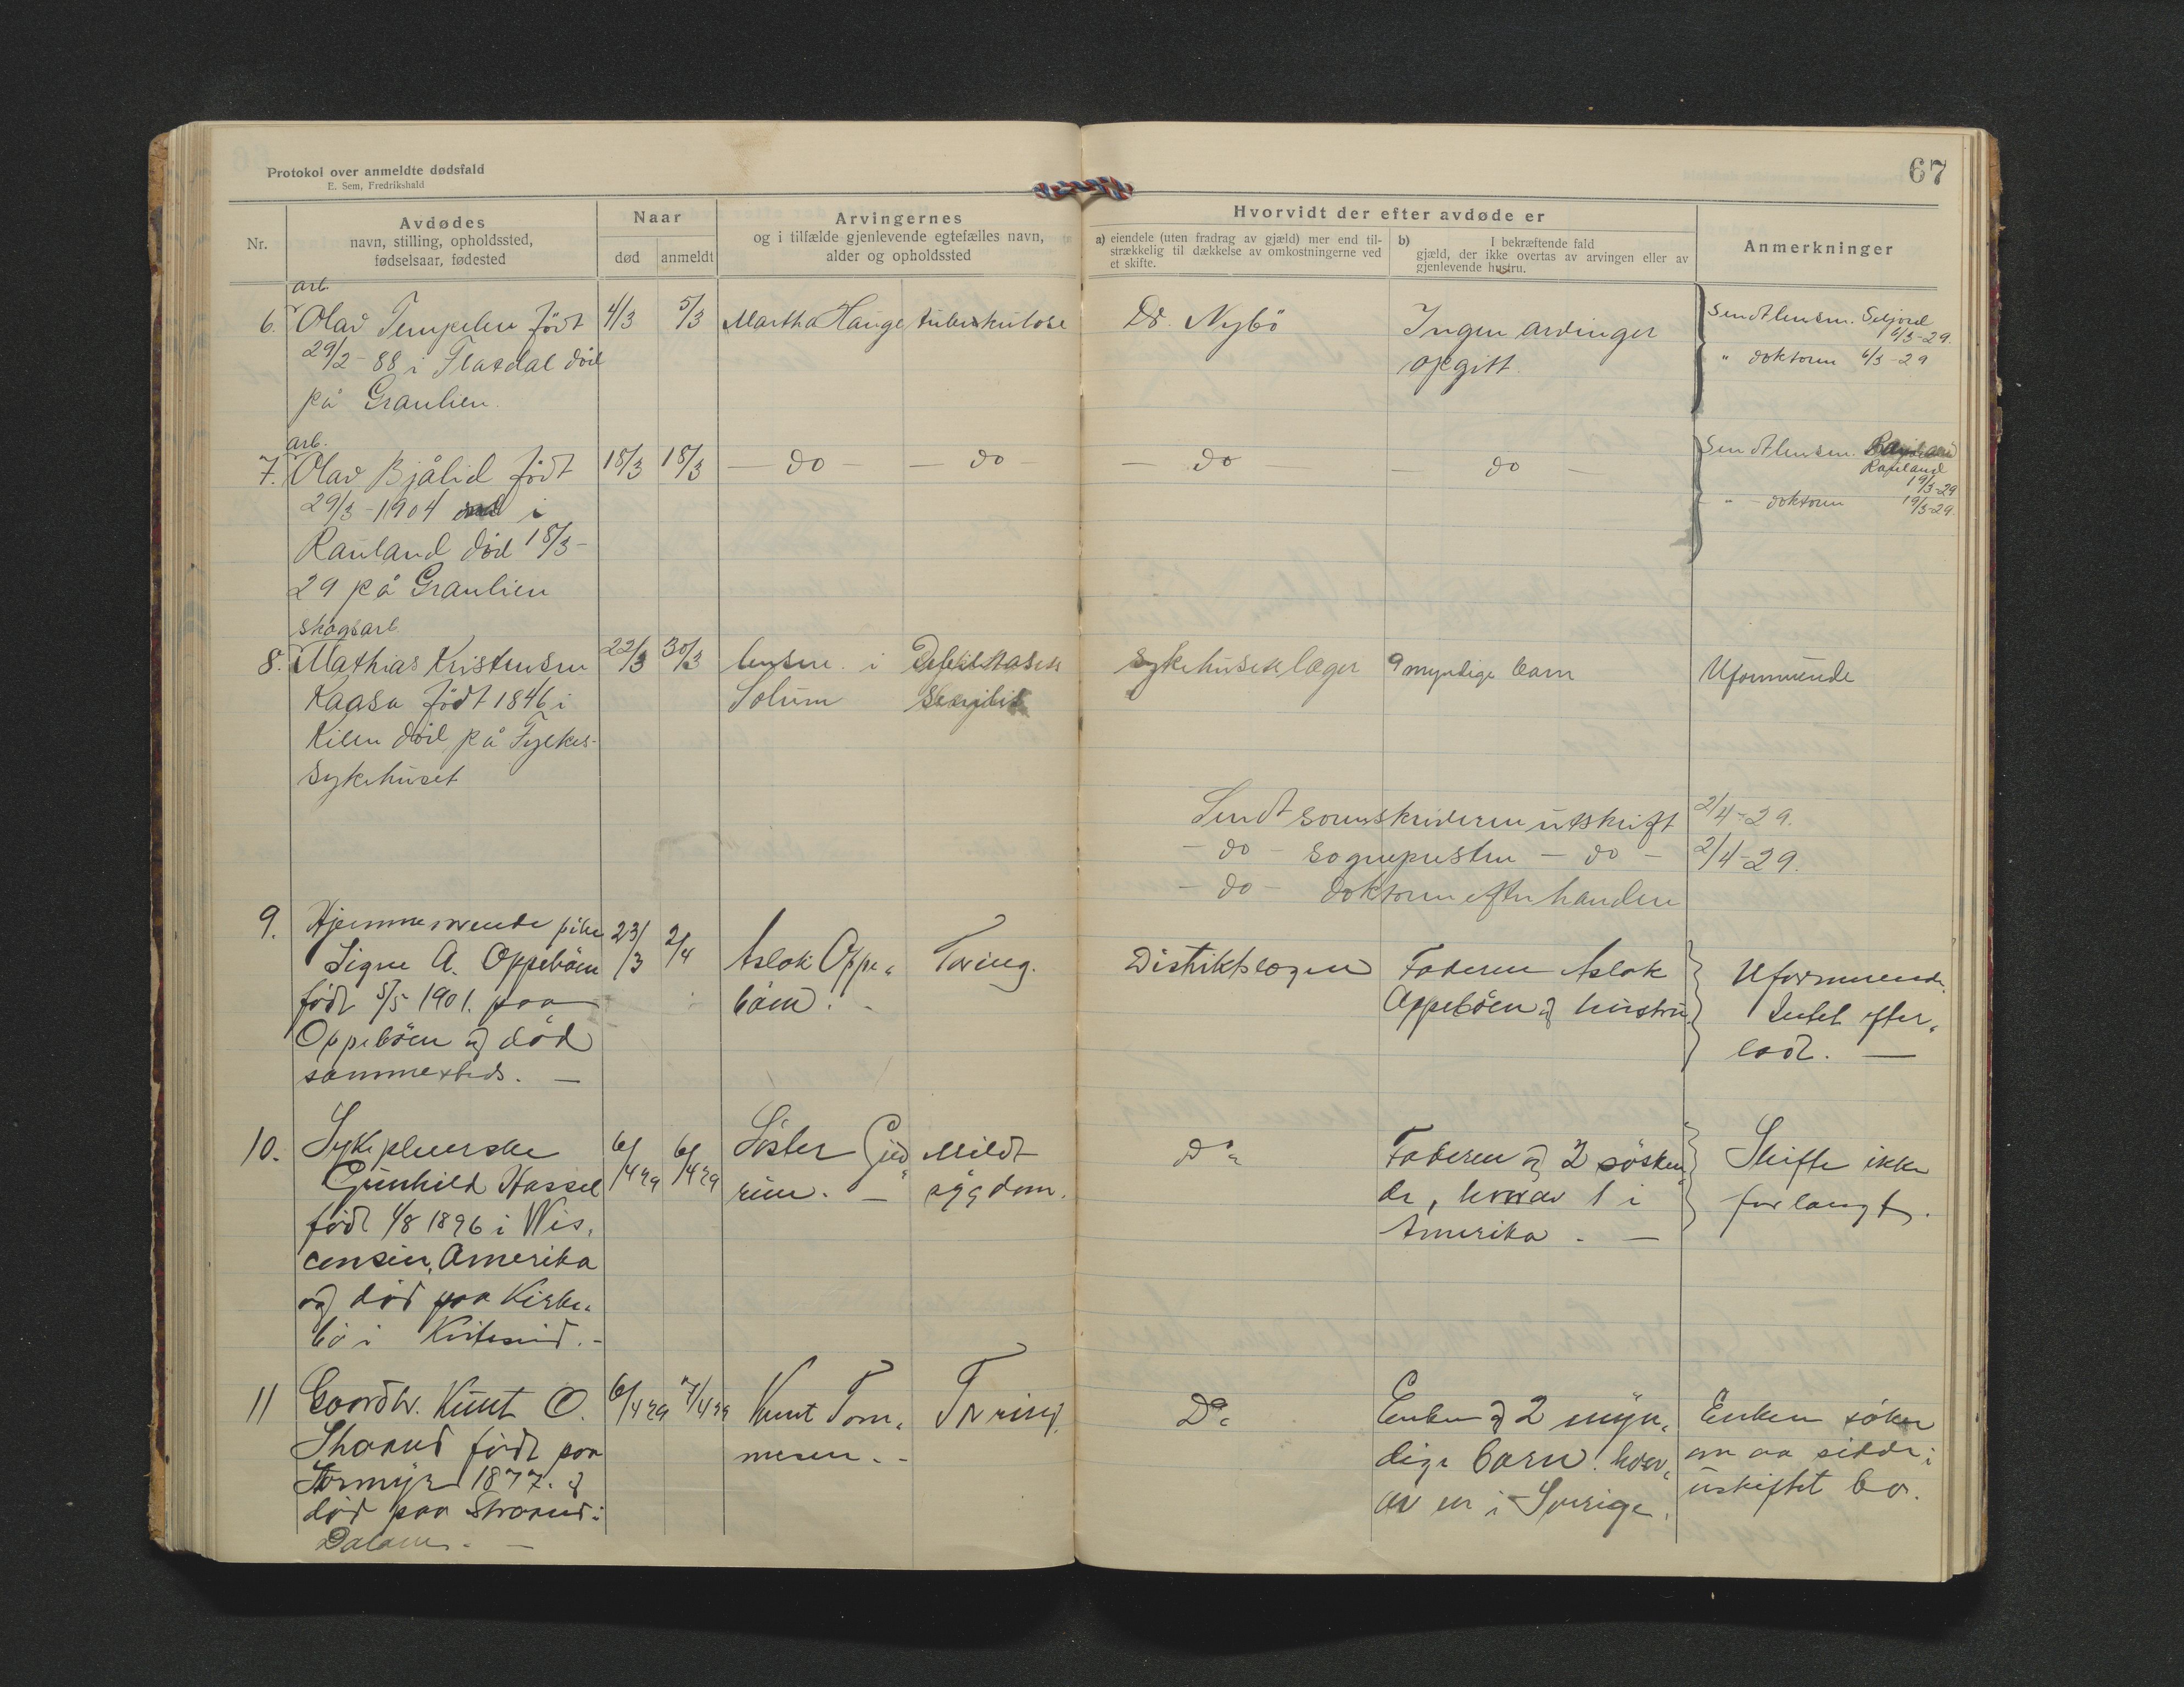 67
Protokol over anmeldte dødsfald
E. Sem, Fredrikshald
Nr.
Avdødes
navn, stilling, opholdssted,
fødselsaar, fødested
Naar
død
anmeldt
Arvingernes
og i tilfælde gjenlevende egtefælles navn,
alder og opholdssted
Hvorvidt der efter avdøde er
a) eiendele (uten fradrag av gjæld) mer end til-
strækkelig til dækkelse av omkostningerne ved
et skifte.
b) I bekræftende fald
gjæld, der ikke overtas av arvingen eller av
gjenlevende hustru.
Anmerkninger
arb.
6. Olav Tempelen født
29/2-88 i Flatdal död
på Graulien.
4/3
5/3
Martha Hauge
tuberkulose
Dr. Nybö
Ingen arvinger
opgitt.
Sendt lensm. Seljord
6/3-29.
" doktoren 6/3-29
arb.
7. Olav Bjålid født
29/3-1904 i
Rauland död 18/3-
29 på Graulien
18/3
18/3
- do -
- do -
- do -
- do -
Sendt lensm.
Rauland
19/3-29
" - doktoren 19/3-29.
skogsarb.
8. Mathias Kristensen
Kaasa født 1846 i
Kilen död på Fylkes-
sykehuset
22/3
30/3
lensm. i
Solum
sykehusets læger
9 myndige barn
Uformuende
Sendt sorenskriveren utskrift 2/4-29.
- do - sognepresten - do - 2/4-29.
- do - doktoren efter handen
9. Hjemmeværende pike
Signe A. Oppeböen
född 5/5 1901. paa
Oppeböen og död
sammesteds. -
23/3
2/4
Aslak Oppe-
böen. -
Tæring.
Distriktslægen
Faderen Aslak
Oppeböen og hustru.
Uformuende.
Intet efter-
ladt. -
10. Sykepleierske
Gunhild Hassel
född 4/8 1896 i Wis-
consin, Amerika
og död paa Kirke-
bö i Kviteseid. -
6/4 29
6/4 29
Söster Gud-
run. -
Mildt-
sygdom.
Do
Faderen og 2 sösken-
de, hvorav 1 i
Amerika. -
Skifte ikke
forlangt.
11 Gaardbr. Knut O.
Straand född paa
Stormyr 1877. og
död paa Straand i
Dalane. -
6/4 29
7/4 29
Knut Tom-
mesen. -
Tæring.
Do
Enken og 2 myn-
dige barn. hvor-
av en i Sverige.
Enken söker
om aa sidde i
uskiftet bo.